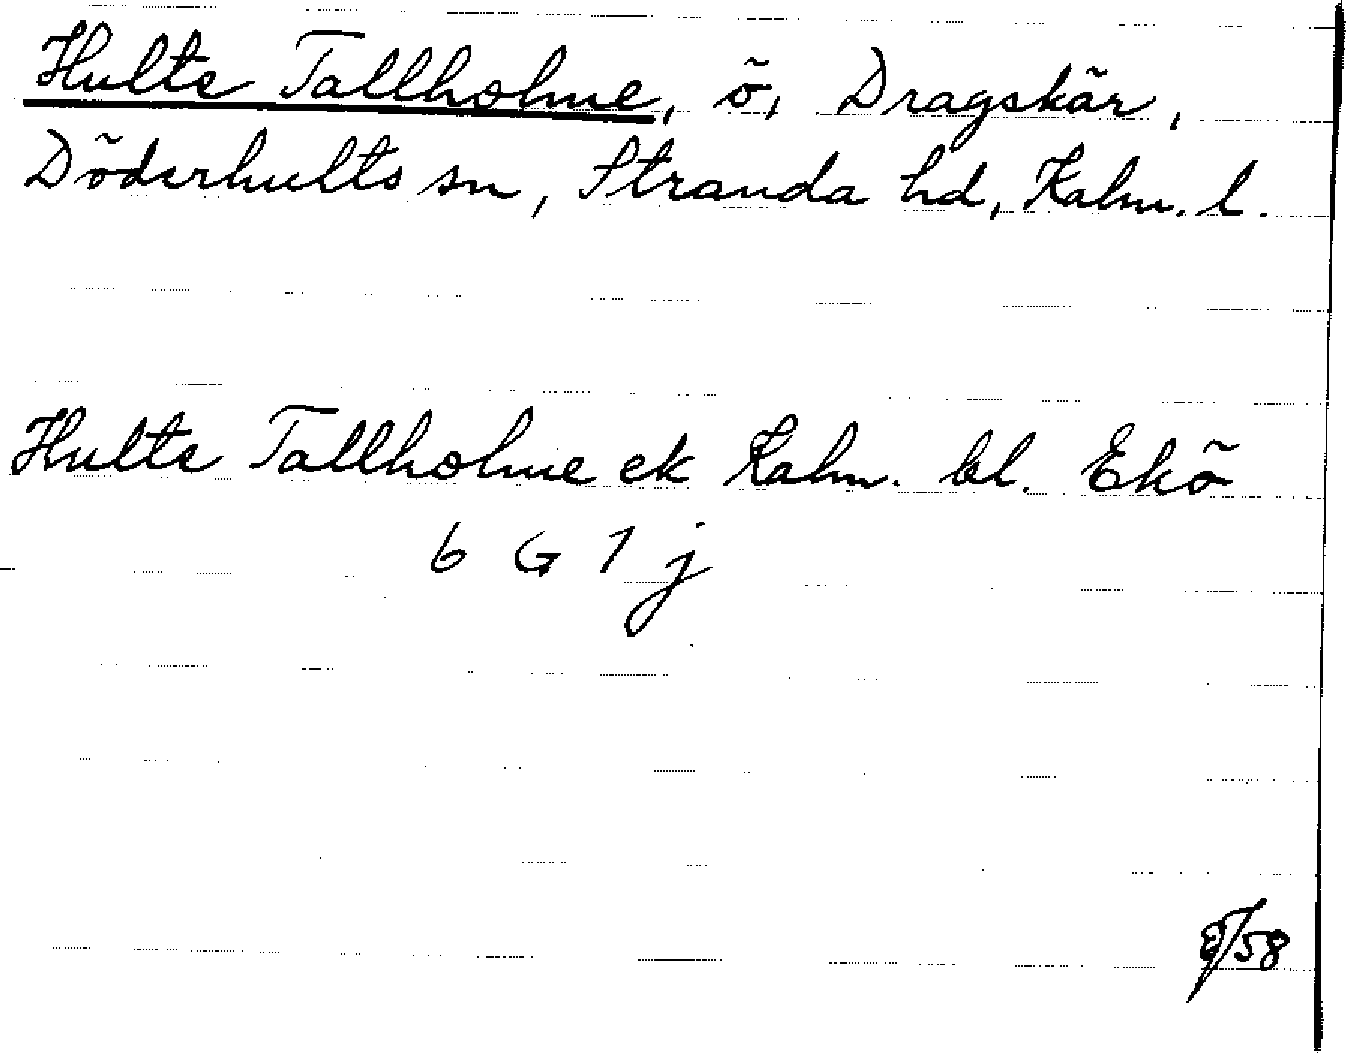 Hults Tallholme, ö, Dragskär,
Döderhults sn, Stranda hd, Kalm. l.
Hults Tallholme ek Kalm. bl. Ekö
6 G 1 j
/58